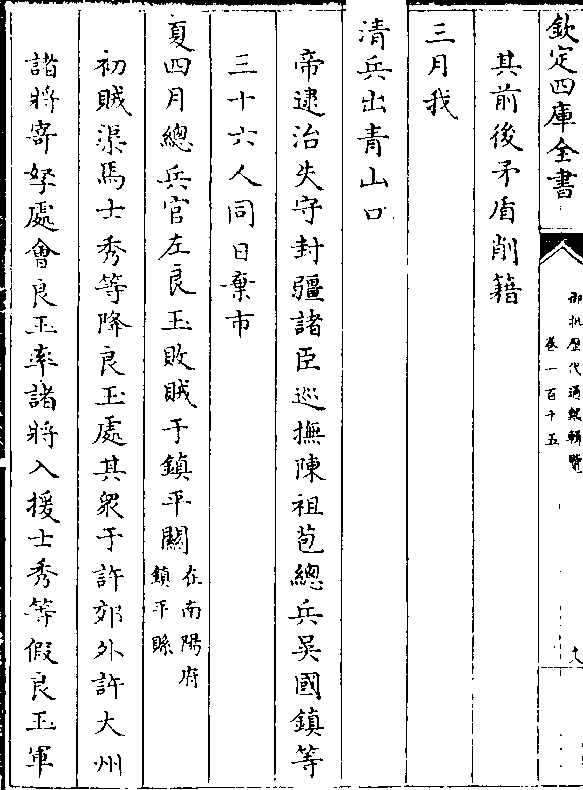 欽定四庫全書
御批歷代通鑑輯覽
卷一百十五
九
其前後矛盾削籍
三月我
清兵出青山口
帝逮治失守封疆諸臣巡撫陳祖苞總兵吳國鎮等
三十六人同日棄市
夏四月總兵官左良玉敗賊于鎮平關
在南陽府
鎮平縣
初賊渠馬士秀等降良玉處其衆于許郊外許大州
諸將寄孥處會良玉率諸將入援士秀等假良玉軍